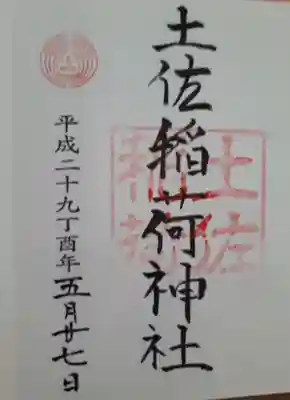 土佐稲荷神社
平成二十九丁酉年五月廿七日
土佐
稲荷